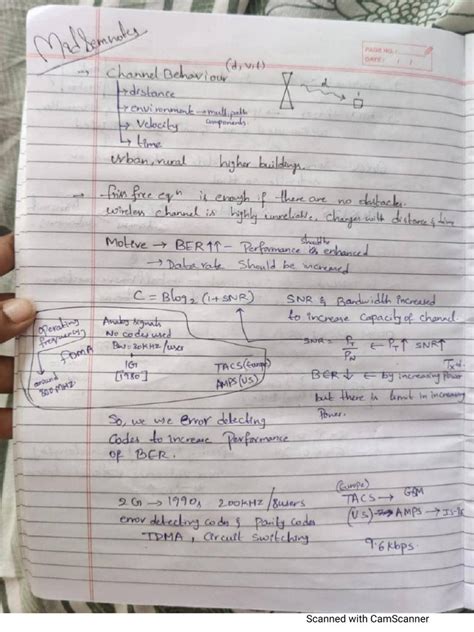 Mid Sem notes
PAGE NO.:
DATE: / /
→ Channel Behaviour (d, v, t)
→ distance
→ environment → multipath components
→ Velocity
→ time
d
Urban, rural higher buildings.
→ Friis free eqn is enough if there are no obstacles.
wireless channel is highly unreliable, changes with distance & time
Motive → BER ↑↑ - Performance should be enhanced
→ Data rate should be increased
C = B log2 (1+SNR) SNR & Bandwidth increased
to increase capacity of channel
operating frequency
Analog signals
No codes used
BW = 30KHZ/user
SNR = PT/PN ← PT↑ SNR↑
FDMA
1G
[1980]
TACS (Europe)
AMPS (US)
around 800 MHZ
BER ↓ ← by increasing Txd. Power
but there is limit in increasing
Power.
So, we use error detecting
Codes to increase Performance
of BER.
2G → 1990s 200KHZ/8users
(Europe)
TACS → GSM
error detecting codes & parity codes
(US) → AMPS → IS-
TDMA, Circuit switching
9.6 kbps.
Scanned with CamScanner